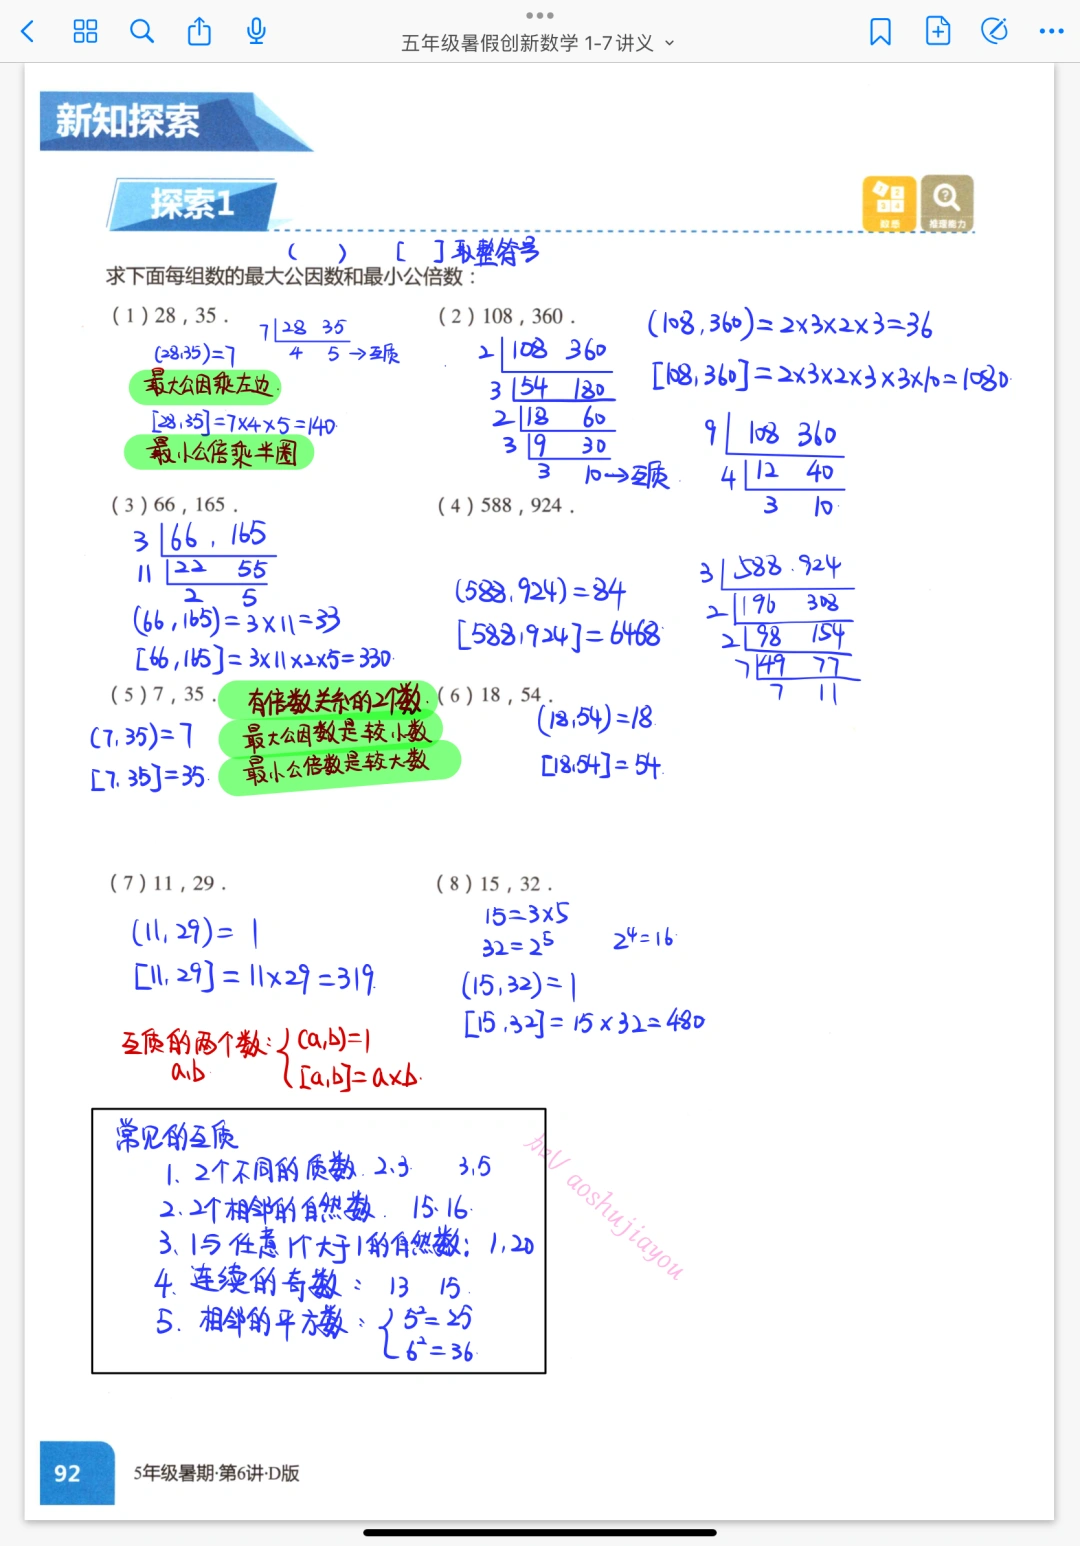 五年级暑假创新数学 1-7讲义
新知探索
探索1
推理能力
( ) [ ] 取整符号
求下面每组数的最大公因数和最小公倍数：
(1) 28，35．
7 28 35
4 5 → 互质
(28,35)=7
最大公因乘左边
[28,35]=7×4×5=140
最小公倍乘半圈
(2) 108，360．
2 108 360
3 54 180
2 18 60
3 9 30
3 10 → 互质
(108,360)=2×3×2×3=36
[108,360]=2×3×2×3×3×10=1080
9 108 360
4 12 40
3 10
(3) 66，165．
3 66，165
11 22 55
2 5
(66,165)=3×11=33
[66,165]=3×11×2×5=330
(4) 588，924．
(588,924)=84
[588,924]=6468
3 588.924
2 196 308
2 98 154
7 49 77
7 11
(5) 7，35．
有倍数关系的2个数
最大公因数是较小数
最小公倍数是较大数
(7,35)=7
[7,35]=35
(6) 18，54．
(18,54)=18
[18,54]=54
(7) 11，29．
(11,29)=1
[11,29]=11×29=319
(8) 15，32．
15=3×5
32=2⁵ 2⁴=16
(15,32)=1
[15,32]=15×32=480
互质的两个数: (a,b)=1
a,b [a,b]=a×b
常见的互质
1、2个不同的质数 2、3 3,5
2、2个相邻的自然数 15、16
3、1与任意1个大于1的自然数: 1,20
4、连续的奇数: 13 15
5、相邻的平方数: 5²=25
6²=36
aoshujiayou
92
5年级暑期·第6讲·D版